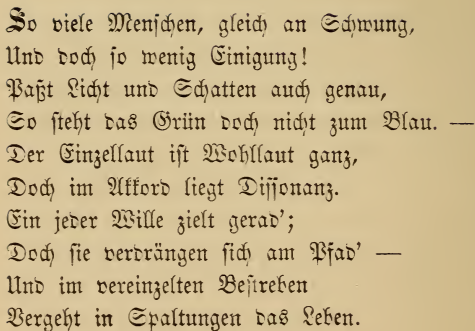 So viele Menschen, gleich an Schwung,
Und doch so wenig Einigung!
Paßt Licht und Schatten auch genau,
So steht das Grün doch nicht zum Blau. —
Der Einzellaut ist Wohllaut ganz,
Doch im Akkord liegt Dissonanz.
Ein jeder Wille zielt gerad';
Doch sie verdrängen sich am Pfad' —
Und im vereinzelten Bestreben
Vergeht in Spaltungen das Leben.